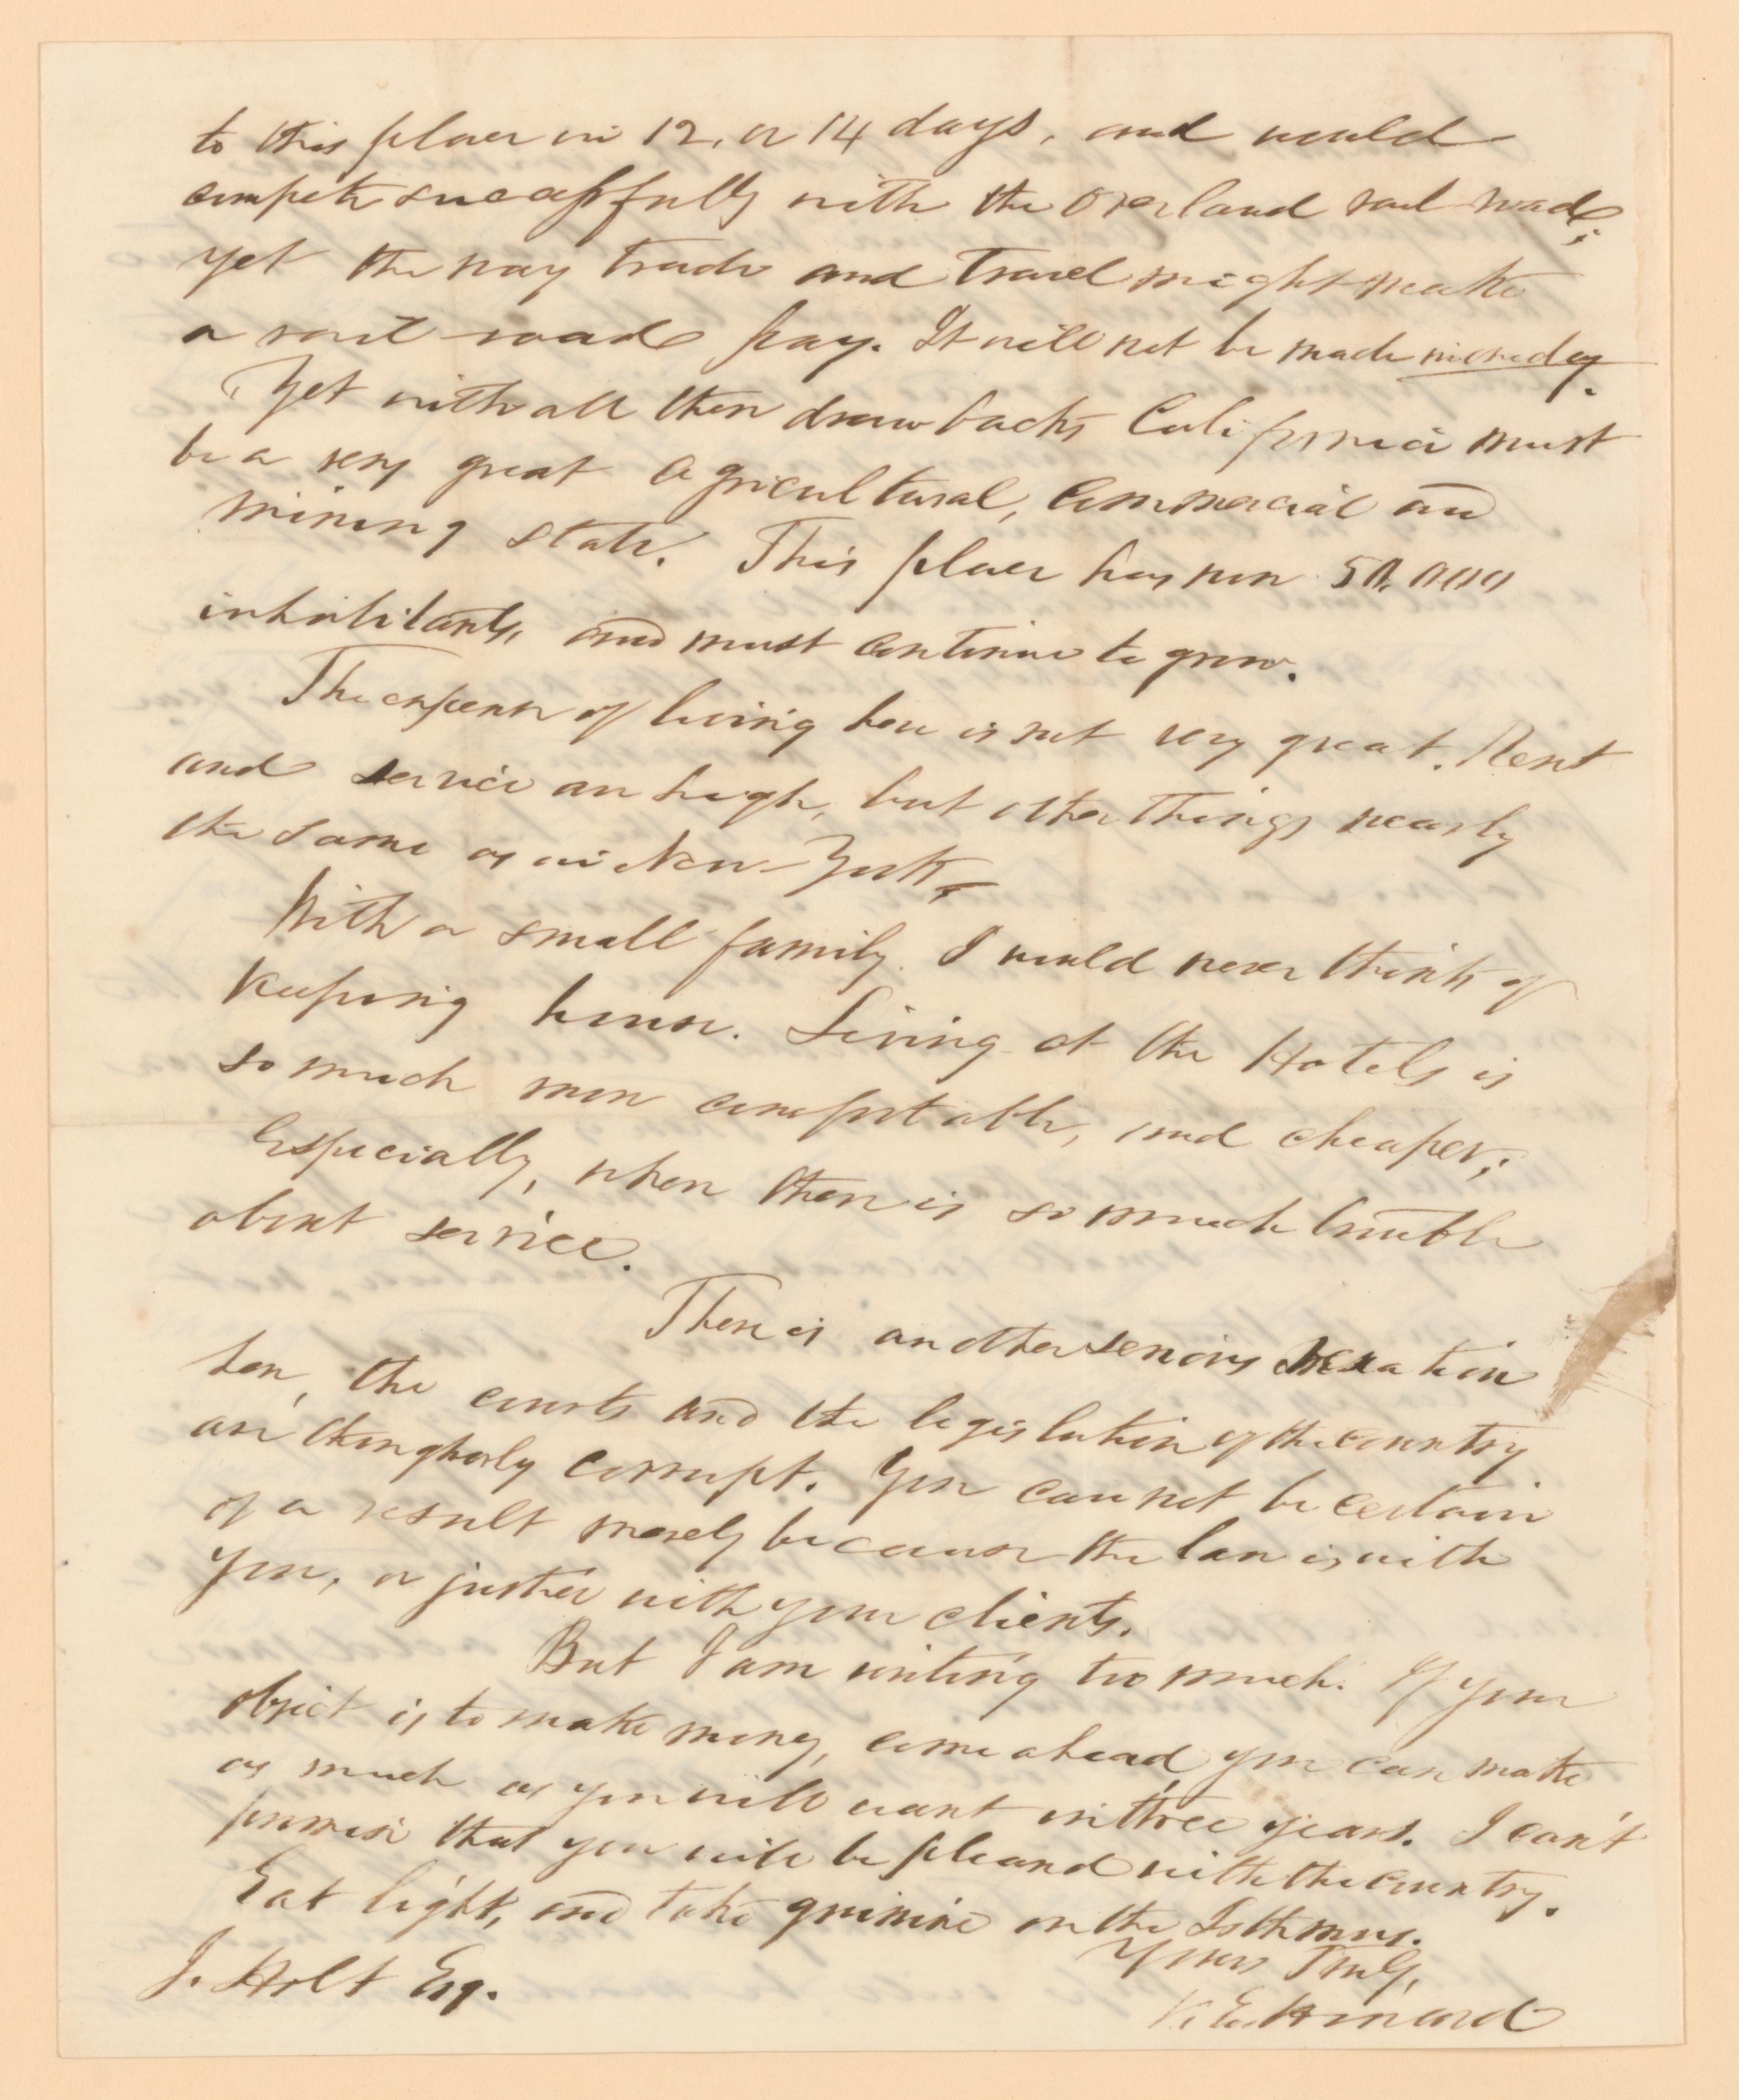 to this place in 12. or 14 days, and would
compete successfully with the overland rail road;
yet the way trade and travel might make
a rail road pay. It will not be made in our day.
Yet with all these drawbacks California must
be a very great agricultural, commercial and
mining state. This place has now 50,000
inhabitants, and must continue to grow.
The expense of living here is not very great. Rent
and service are high, but other things nearly
the same as in New York.
With a small family I would never think of
keeping house. Living at the Hotels is
so much more comfortable, and cheaper;
Especially, when there is so much trouble
about service.
There is another serious vexation
here, the courts and the legislation of the country
are thoroughly corrupt. You can not be certain
of a result merely because the law is with
you, or justice with your clients.
But I am writing too much. If your
object is to make money, come ahead, you can make
as much as you will want in three years. I can't
promise that you will be pleased with the country.
Eat light, and take quinine on the Isthmus.
Yours Truly,
J. Holt Esq.
Howard